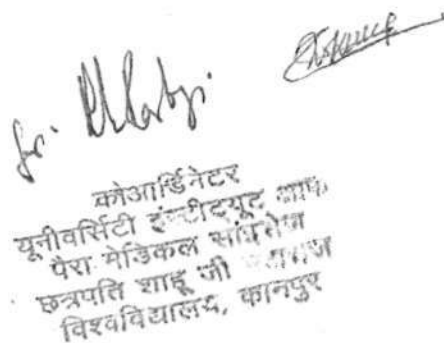 for.
कोआर्डिनेटर
यूनीवर्सिटी इंस्टीट्यूट आफ
पैरा मेडिकल साइंसेज
छत्रपति शाहू जी महाराज
विश्वविद्यालय, कानपुर